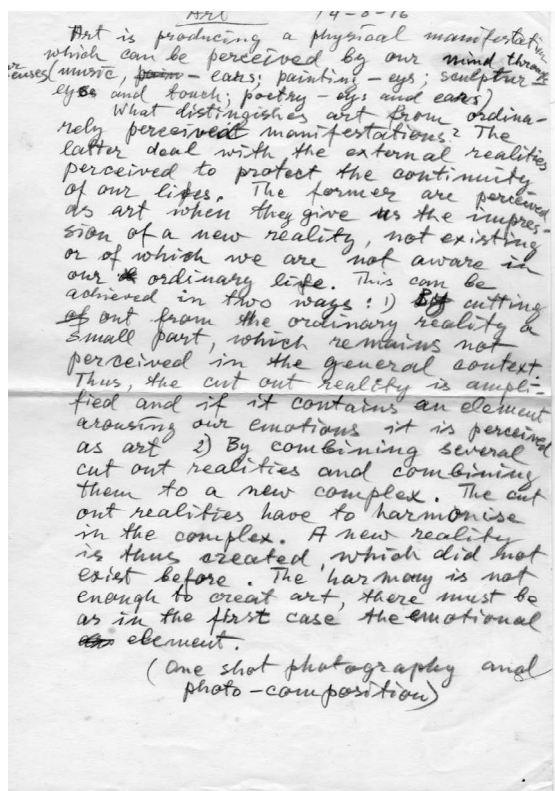 Art 14-8-16
Art is producing a physical manifestation
which can be perceived by our mind through
our senses (music, - ears; paintini - eyes; sculpture -
eyes and touch; poetry - eys and ears)
What distinguishes art from ordina-
rely perceived manifestations? The
latter deal with the external realities
perceived to protect the continuity
of our lifes. The former are perceived
as art when they give us the impres-
sion of a new reality, not existing
or of which we are not aware in
our ordinary life. This can be
achieved in two ways: 1) By cutting
out from the ordinary reality a
small part, which remains not
perceived in the general context.
Thus, the cut out reality is ampli-
fied and if it contains an element
arousing our emotions it is perceived
as art 2) By combining several
cut out realities and combining
them to a new complex. The cut
out realities have to harmonise
in the complex. A new reality
is thus created, which did not
exist before. The harmony is not
enough to creat art, there must be
as in the first case the emotional
element.
(One shot photography and
photo-composition)